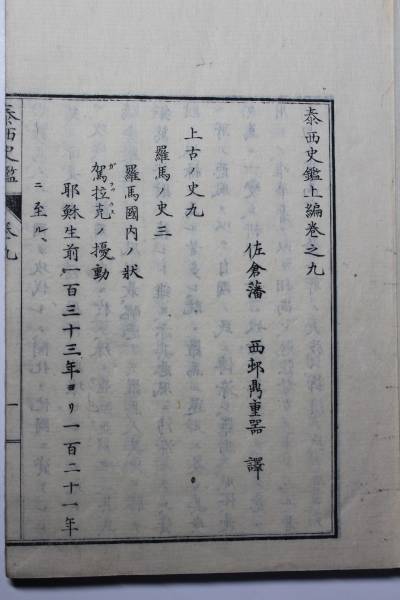 泰西史鑑上編卷之九
佐倉藩 西邨鼎重器 譯
上古ノ史九
羅馬ノ史三
羅馬國内ノ狀
駕拉克ノ擾動
耶穌生前一百三十三年ヨリ一百二十一年
ニ至ル
泰西史鑑
卷九
一